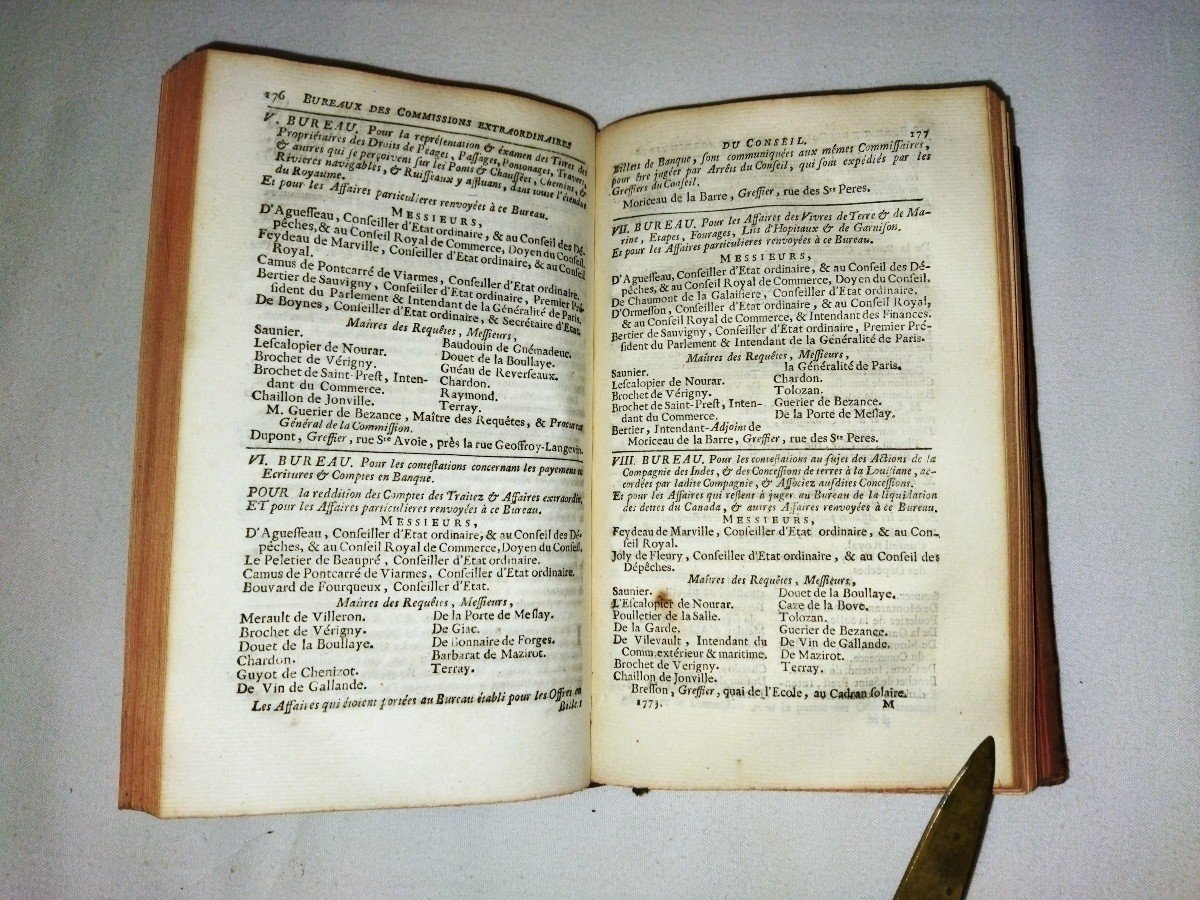 176 BUREAUX DES COMMISSIONS EXTRAORDINAIRES
V. BUREAU. Pour la repréſentation & éxamen des Titres des
Propriétaires des Droits de Péages, Paſſages, Pontonages, Travers,
& autres qui ſe perçoivent ſur les Ponts & Chauſſées, Chemins, &
Rivieres navigables, & Ruiſſeaux y affluans, dans toute l'étendue
du Royaume.
Et pour les Affaires particulieres renvoyées à ce Bureau.
MESSIEURS,
D'Agueſſeau, Conſeiller d'Etat ordinaire, & au Conſeil des Dé-
pêches, & au Conſeil Royal de Commerce, Doyen du Conſeil.
Feydeau de Marville, Conſeiller d'Etat ordinaire, & au Conſeil
Royal.
Camus de Pontcarré de Viarmes, Conſeiller d'Etat ordinaire.
Bertier de Sauvigny, Conſeiller d'Etat ordinaire, Premier Pré-
ſident du Parlement & Intendant de la Généralité de Paris.
De Boynes, Conſeiller d'Etat ordinaire, & Secrétaire d'Etat.
Maîtres des Requêtes, Meſſieurs,
Saunier.
Leſcalopier de Nourar.
Brochet de Vérigny.
Brochet de Saint-Preſt, Inten-
dant du Commerce.
Chaillon de Jonville.
Baudouin de Guémadeuc.
Douet de la Boullaye.
Guéau de Reverſeaux.
Chardon.
Raymond.
Terray.
M. Guerier de Bezance, Maître des Requêtes, & Procureur
Général de la Commiſſion.
Dupont, Greffier, rue Ste Avoie, près la rue Geoffroy-Langevin.
VI. BUREAU. Pour les conteſtations concernant les payemens en
Ecritures & Comptes en Banque.
POUR la reddition des Comptes des Traitez & Affaires extraordin.
ET pour les Affaires particulieres renvoyées à ce Bureau.
MESSIEURS,
D'Agueſſeau, Conſeiller d'Etat ordinaire, & au Conſeil des Dé-
pêches, & au Conſeil Royal de Commerce, Doyen du Conſeil.
Le Peletier de Beaupré, Conſeiller d'Etat ordinaire.
Camus de Pontcarré de Viarmes, Conſeiller d'Etat ordinaire.
Bouvard de Fourqueux, Conſeiller d'Etat.
Maîtres des Requêtes, Meſſieurs,
Merault de Villeron.
Brochet de Vérigny.
Douet de la Boullaye.
Chardon.
Guyot de Chenizot.
De Vin de Gallande.
De la Porte de Meſlay.
De Giac.
De Bonnaire de Forges.
Barbarat de Mazirot.
Terray.
Les Affaires qui étoient portées au Bureau établi pour les Offres en
Billets
DU CONSEIL. 177
Billets de Banque, ſont communiquées aux mêmes Commiſſaires,
pour être jugées par Arrêts du Conſeil, qui ſont expédiés par les
Greffiers du Conſeil.
Moriceau de la Barre, Greffier, rue des Sts Peres.
VII. BUREAU. Pour les Affaires des Vivres de Terre & de Ma-
rine, Etapes, Fourages, Lits d'Hopitaux & de Garniſon.
Et pour les Affaires particulieres renvoyées à ce Bureau.
MESSIEURS,
D'Agueſſeau, Conſeiller d'Etat ordinaire, & au Conſeil des Dé-
pêches, & au Conſeil Royal de Commerce, Doyen du Conſeil.
De Chaumont de la Galaiſiere, Conſeiller d'Etat ordinaire.
D'Ormeſſon, Conſeiller d'Etat ordinaire, & au Conſeil Royal,
& au Conſeil Royal de Commerce, & Intendant des Finances.
Bertier de Sauvigny, Conſeiller d'Etat ordinaire, Premier Pré-
ſident du Parlement & Intendant de la Généralité de Paris.
Maîtres des Requêtes, Meſſieurs,
Saunier.
Leſcalopier de Nourar.
Brochet de Vérigny.
Brochet de Saint-Preſt, Inten-
dant du Commerce.
Bertier, Intendant-Adjoint de
la Généralité de Paris.
Chardon.
Tolozan.
Guerier de Bezance.
De la Porte de Meſlay.
Moriceau de la Barre, Greffier, rue des Sts Peres.
VIII. BUREAU. Pour les conteſtations au ſujet des Actions de la
Compagnie des Indes, & des Conceſſions de terres à la Louiſiane, ac-
cordées par ladite Compagnie, & Aſſociez auſdites Conceſſions.
Et pour les Affaires qui reſtent à juger au Bureau de la liquidation
des dettes du Canada, & autres Affaires renvoyées à ce Bureau.
MESSIEURS,
Feydeau de Marville, Conſeiller d'Etat ordinaire, & au Con-
ſeil Royal.
Joly de Fleury, Conſeiller d'Etat ordinaire, & au Conſeil des
Dépêches.
Maîtres des Requêtes, Meſſieurs,
Saunier.
L'Eſcalopier de Nourar.
Poulletier de la Salle.
De la Garde.
De Vilevault, Intendant du
Comm. extérieur & maritime.
Brochet de Verigny.
Chaillon de Jonville.
Douet de la Boullaye.
Caze de la Bove.
Tolozan.
Guerier de Bezance.
De Vin de Gallande.
De Mazirot.
Terray.
Breſſon, Greffier, quai de l'Ecole, au Cadran ſolaire.
1773. M